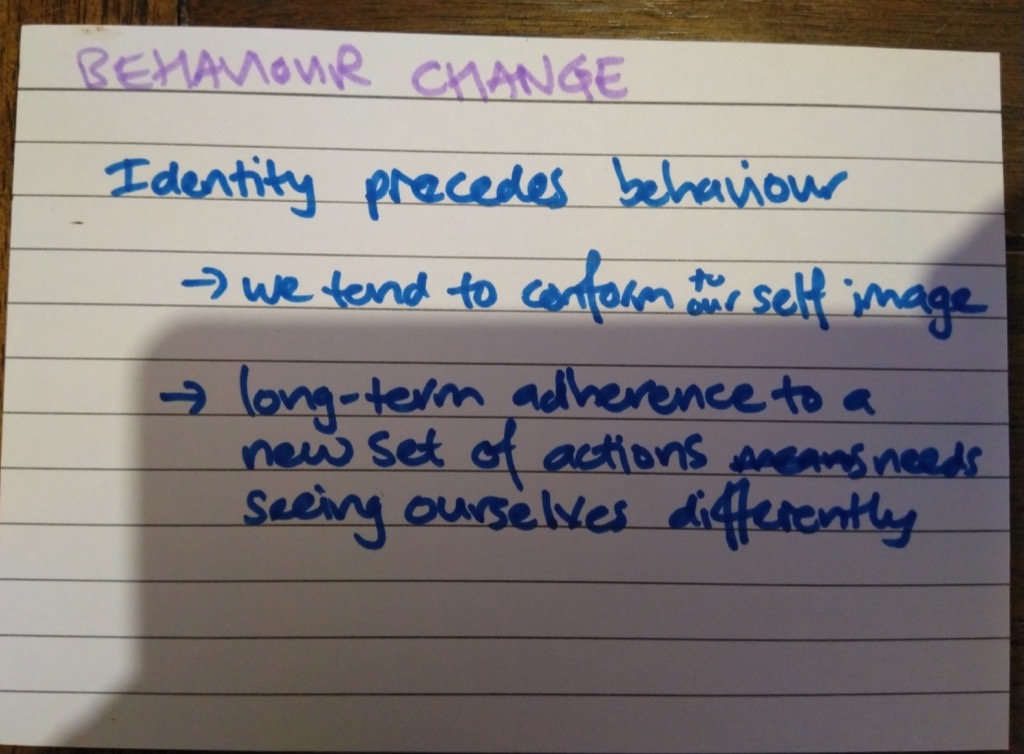 BEHAVIOUR CHANGE
Identity precedes behaviour
→ we tend to conform to our self image
→ long-term adherence to a
new set of actions means needs
seeing ourselves differently